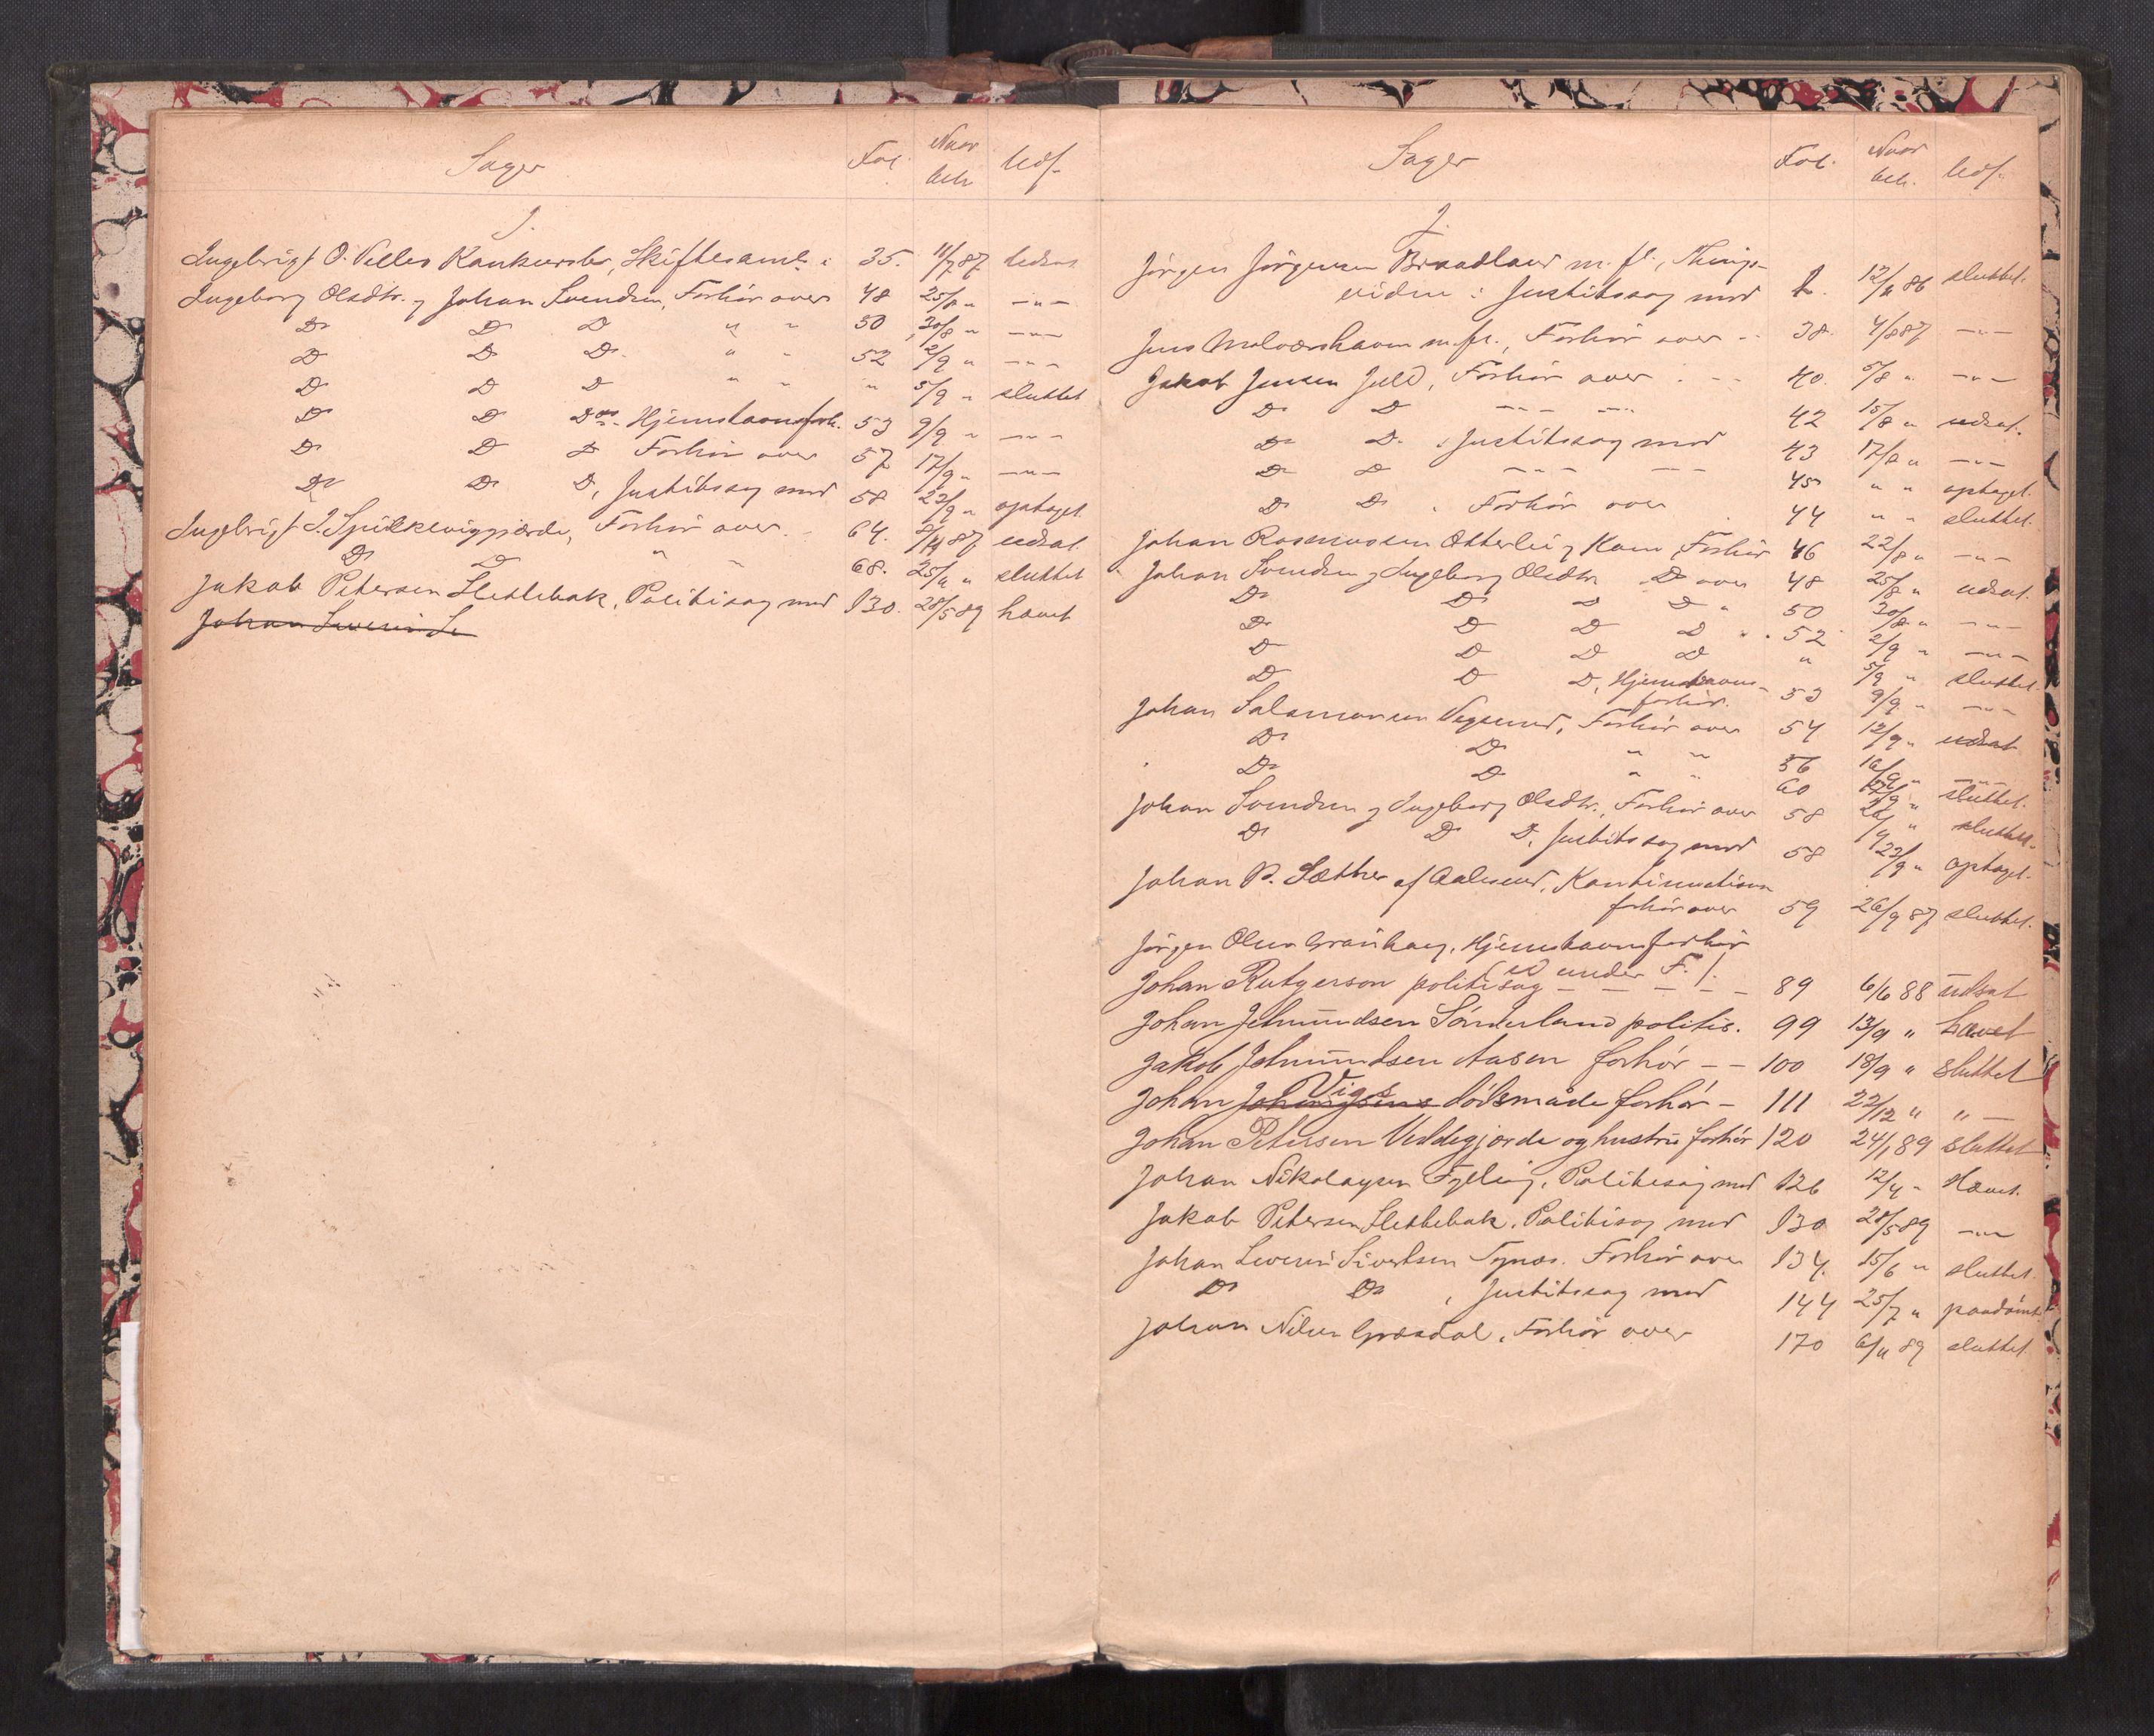 Sager Fol. Naar beh. Udf.
I.
Ingebrigt O. Velles Konkursbo, Skiftesaml. 35. 11/7 87 udsat
Ingeborg Olsdtr. og Johan Svendsen, Forhör over 48 25/8 " -"-
Do Do Do " " 50 30/8 " -"-
Do Do Do " " 52 2/9 " -"-
Do Do Do " " " 5/9 " sluttet
Do Do Do Hjemstavnsforh. 53 9/9 " -"-
Do Do Do Forhör over 57 17/9 " -"-
Do Do Do, Justitssag mod 58 23/9 " optaget
Ingebrigt I. Spilkeviggjærde, Forhör over 64. 8/11 87 udsat
Do Do " " 68. 25/11 " sluttet
Jakob Petersen Slettebak, Politisag mod 130. 28/5 89 hævet
Johan Severin Se
Sager Fol. Naar beh. Udf.
J.
Jörgen Jörgensen Braadland m. fl., Things-
vidne i Justitssag mod 1. 12/11 86 sluttet.
Jens Molværshavn m. fl., Forhör over 38. 4/8 87 -"-
Jakob Jensen Juld, Forhör over 40. 5/8 " -"-
Do Do -"- -"- 42 15/8 " udsat.
Do Do, Justitssag mod 43 17/8 " -"-
Do Do -"- -"- 45 " " optaget.
Do Do, Forhör over 44 " " sluttet.
Johan Rasmussen Otterlei og Kone, Forhör 46 22/8 " -"-
Johan Svendsen og Ingeborg Olsdtr. Do over 48 25/8 " udsat.
Do Do Do Do " 50 30/8 " -"-
Do Do Do Do " 52 2/9 " -"-
Do Do Do Do " 5/9 " sluttet.
Do Do Do, Hjemstavns-
forhör. 53 9/9 " -"-
Johan Salamonsen Vegsund, Forhör over 54 12/9 " udsat
Do Do " " 56 16/9 " -"-
Do Do " " 60 27/9 " sluttet.
Johan Svendsen og Ingeborg Olsdtr., Forhör over 58 " sluttet.
Do Do Do, Justitssag mod 58 23/9 " optaget.
Johan P. Sæther af Aalesund, Kontinuations
forhör over 59 26/9 87 sluttet.
Jörgen Olsen Grauhaug, Hjemstavnsforhör
(se under F.).
Johan Rutgerson politisag - - - - 89 6/6 88 udsat
Johan Jetmundsen Sönderland politis. 99 13/9 " hævet
Jakob Jetmundsen Aasen forhör - - 100 18/9 " sluttet
Johan Johansens Vigs dödsmåde forhör - 111 22/12 " " -
Johan Petersen Veddegjærde og hustru forhör 120 24/1 89 sluttet
Johan Nikolaysen Fylling, Politisag mod 126 12/4 " Hævet.
Jakob Petersen Slettebak, Politisag mod 130 28/5 89 -"-
Johan Severin Sivertsen Nynæs. Forhör over 134. 15/6 " sluttet.
Do Do, Justitssag mod 144 25/7 " paadömt
Johan Nilsen Græsdal, Forhör over 170 6/11 89 sluttet.